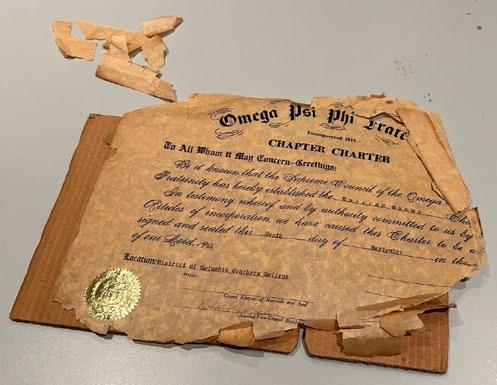 Omega Psi Phi Frate
Incorporated 1914
CHAPTER CHARTER
To All Whom it May Concern-Greetings:
Be it known that the Supreme Council of the Omega
Fraternity has hereby established the Chap
In testimony whereof and by authority committed to us by
of incorporation, we have caused this Charter to be a
signed and sealed this Tenth day of November in the
of our Lord, 19
Location: District of Columbia Teachers College
Grand Keeper of Records and Seal